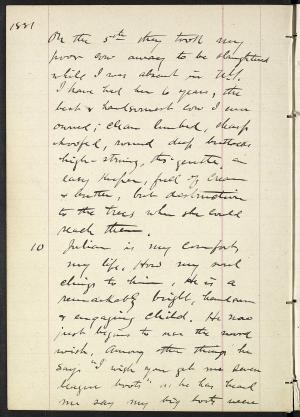 1881
On the 5th they took my
poor cow away to be slaughtered
while I was absent in N.Y.
I have had her 6 years, the
best & handsomest cow I ever
owned; clean limbed, sharp
hoofed, round deep buttocks
high-strung, tho' gentle, an
easy keeper, full of cream
& butter, but destructive
to the trees when she could
reach them.
10 Julian is my comfort,
my life. How my soul
clings to him. He is a
remarkably bright, handsome
& engaging child. He now
just begins to use the word
wish. Among other things he
says "I wish you get me seven
league boots" as he has heard
me say my big boots were